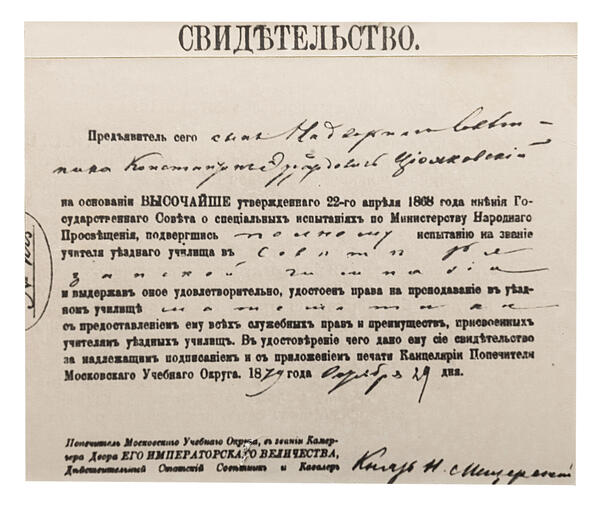 СВИДѢТЕЛЬСТВО.
Предъявитель сего сынъ Надворнаго Совѣт-
ника Константинъ Эдуардовичъ Ціолковскій
на основаніи ВЫСОЧАЙШЕ утвержденнаго 22-го апрѣля 1868 года мнѣнія Го-
сударственнаго Совѣта о спеціальныхъ испытаніяхъ по Министерству Народнаго
Просвѣщенія, подвергшись полному испытанію на званіе
учителя уѣзднаго училища въ Совѣтѣ Ря
занской гимназіи
и выдержавъ оное удовлетворительно, удостоенъ права на преподаваніе въ уѣзд-
номъ училищѣ математики
съ предоставленіемъ ему всѣхъ служебныхъ правъ и преимуществъ, присвоенныхъ
учителямъ уѣздныхъ училищъ. Въ удостовѣреніе чего дано ему сіе свидѣтельство
за надлежащимъ подписаніемъ и съ приложеніемъ печати Канцеляріи Попечителя
Московскаго Учебнаго Округа. 1879 года Октября 29 дня.
Попечитель Московскаго Учебнаго Округа, въ званіи Камер-
гера Двора ЕГО ИМПЕРАТОРСКАГО ВЕЛИЧЕСТВА,
Дѣйствительный Статскій Совѣтникъ и Кавалеръ Князь Н. Мещерский